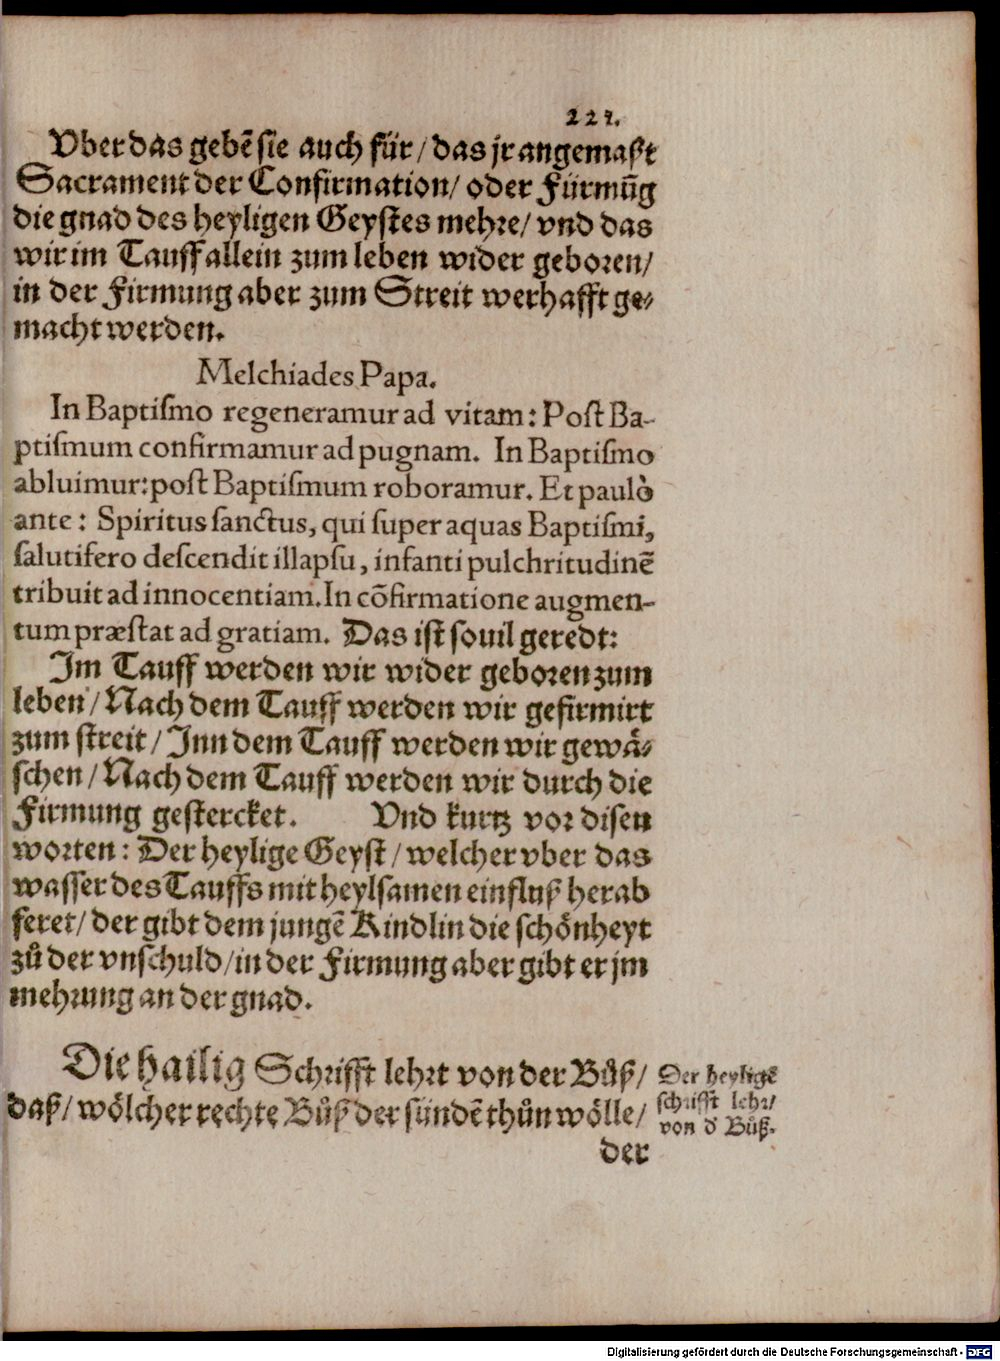 227.
Vber das gebẽ sie auch für / das jr angemaſt
Sacrament der Confirmation / oder Fürmũg
die gnad des heyligen Geyſtes mehre / vnd das
wir im Tauff allein zum leben wider geboren /
in der Firmung aber zum Streit werhafft ge⸗
macht werden.
Melchiades Papa.
In Baptiſmo regeneramur ad vitam: Poſt Ba-
ptiſmum confirmamur ad pugnam. In Baptiſmo
abluimur: poſt Baptiſmum roboramur. Et paulò
ante: Spiritus ſanctus, qui ſuper aquas Baptiſmi,
ſalutifero deſcendit illapſu, infanti pulchritudinẽ
tribuit ad innocentiam. In cõfirmatione augmen-
tum præſtat ad gratiam. Das iſt ſouil geredt:
Im Tauff werden wir wider geboren zum
leben / Nach dem Tauff werden wir gefirmirt
zum ſtreit / Inn dem Tauff werden wir gewä⸗
ſchen / Nach dem Tauff werden wir durch die
Firmung geſtercket. Vnd kurtz vor diſen
worten: Der heylige Geyſt / welcher vber das
waſſer des Tauffs mit heylſamen einfluß herab
feret / der gibt dem jungẽ Kindlin die ſchönheyt
zů der vnſchuld / in der Firmung aber gibt er jm
mehrung an der gnad.
Die hailig Schrifft lehrt von der Bůß /
daß / wölcher rechte Bůß der ſündẽ thůn wölle /
der
Der heyligẽ
ſchrifft lehr /
von d̕ Bůß.
Digitalisierung gefördert durch die Deutsche Forschungsgemeinschaft - DFG